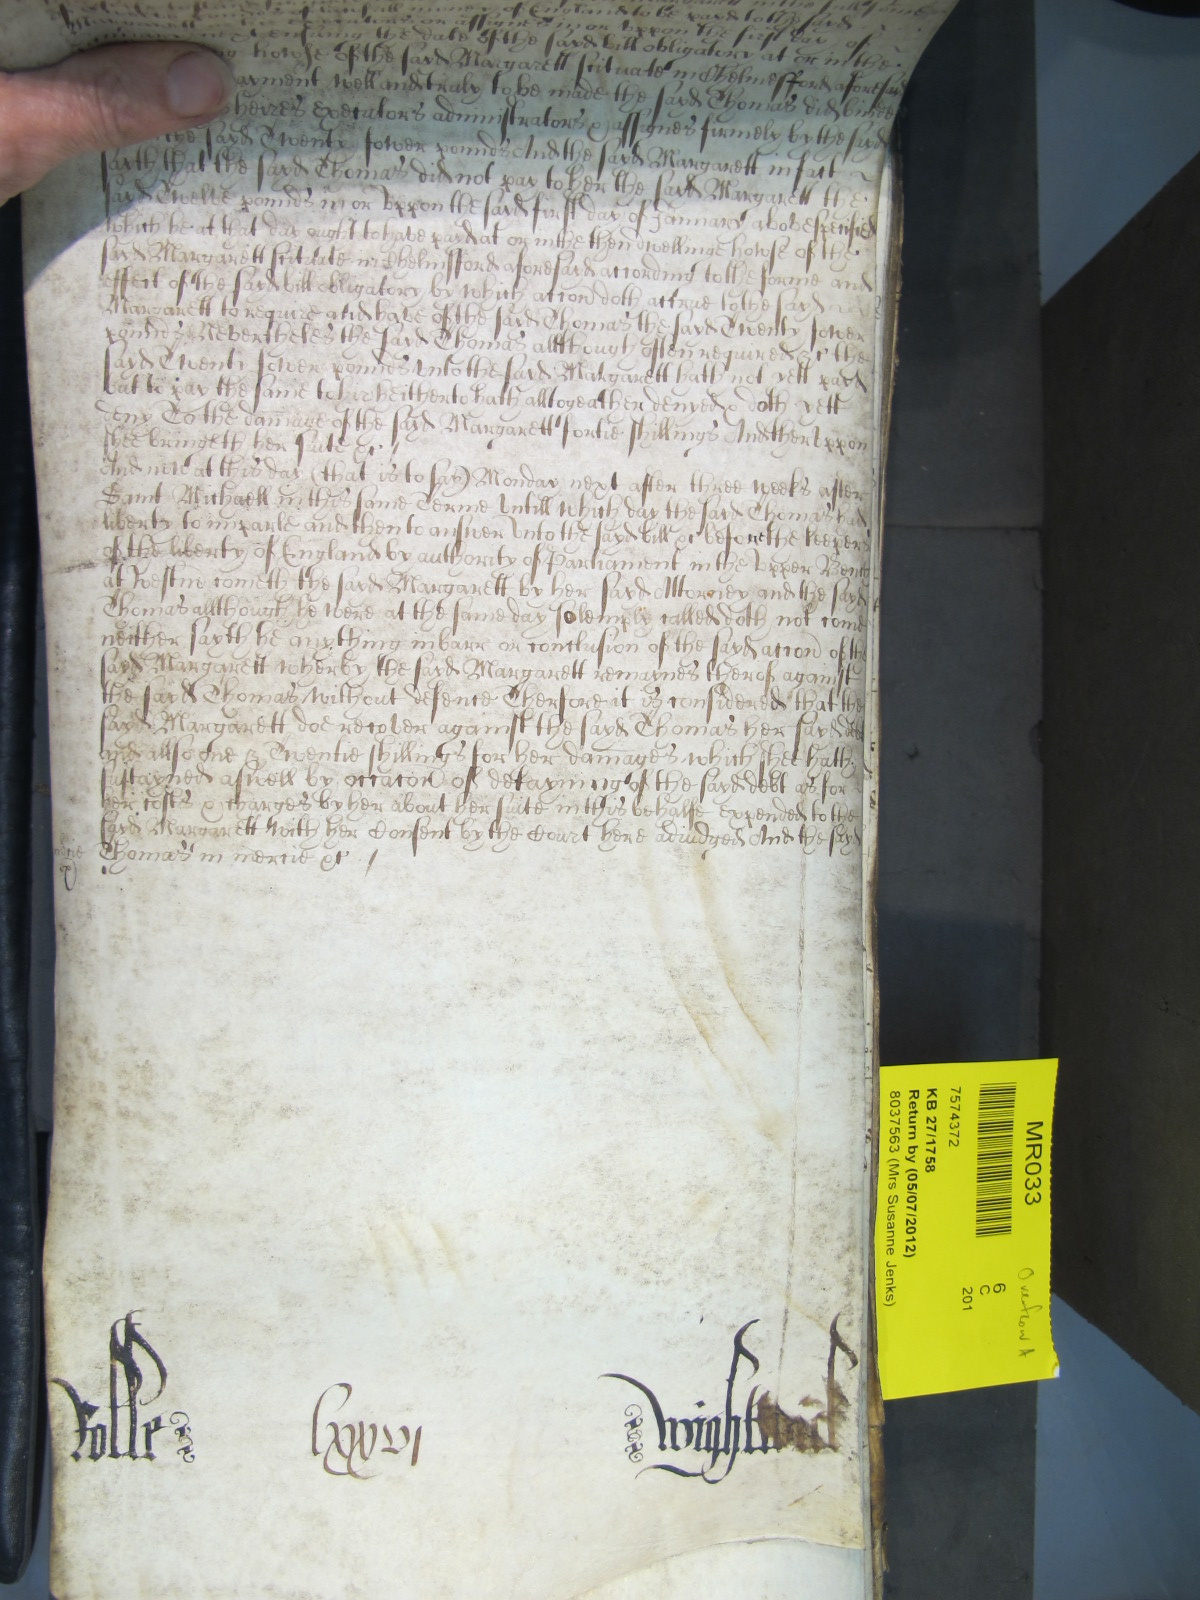 of England to be payd to the sayd
or assignes in or uppon the first day of
ensuing the date of the sayd bill obligatory at or in the
howse of the sayd Margarett scituate in Chelmesfford aforesayd
payment well and truly to be made the sayd Thomas did binde
heires executors administrators & assignes firmely by the sayd
the sayd Twenty fower pounds And the sayd Margarett in fact
sayth that the sayd Thomas did not pay to her the sayd Margarett the
sayd Twelve pounds in or uppon the sayd first day of January above specified
which he at that day ought to have payd at or in the then dwellinge howse of the
sayd Margarett scituate in Chelmsfford aforesayd according to the forme and
effect of the sayd bill obligatory by which accion doth accrue to the sayd
Margarett to require and have of the sayd Thomas the sayd Twenty fower
pounds Nevertheles the sayd Thomas allthough often required &c the
sayd Twenty fower pounds unto the sayd Margarett hath not yett payd
but to pay the same to her heitherto hath altogeather denyed & doth yett
deny To the damage of the sayd Margarett fortie shillings And therUppon
shee bringeth her suite &c /
And now at this day (that is to say) Monday next after three weeks after
Saint Michaell in this same Terme untill which day the sayd Thomas had
liberty to imparle and then to answer unto the sayd bill &c before the keepers
of the liberty of England by authority of Parliament in the Upper Bench
at Westm cometh the sayd Margarett by her sayd Attorney and the sayd
Thomas allthough he were at the same day solemply called doth not come
neither sayth he any thing in barr or conclusion of the sayd accion of the
sayd Margarett wherby the sayd Margarett remaynes therof against
the sayd Thomas without defence Therfore it is considered that the
sayd Margarett doe recover against the sayd Thomas her sayd debt
and allso one & Twentie shillings for her damages which shee hath
sustayned aswell by occacion of detayning of the sayd debt as for
her costs & charges by her about her suite in this behalfe expended to the
sayd Margarett with her Consent by the Court here adiudged And the sayd
Thomas in mercie &c /
Rolle lxxvi Wightwick
MR033
7574372
KB 27/1758
Return by (05/07/2012)
8037563 (Mrs Susanne Jenks)
6
C
201
Overflow A